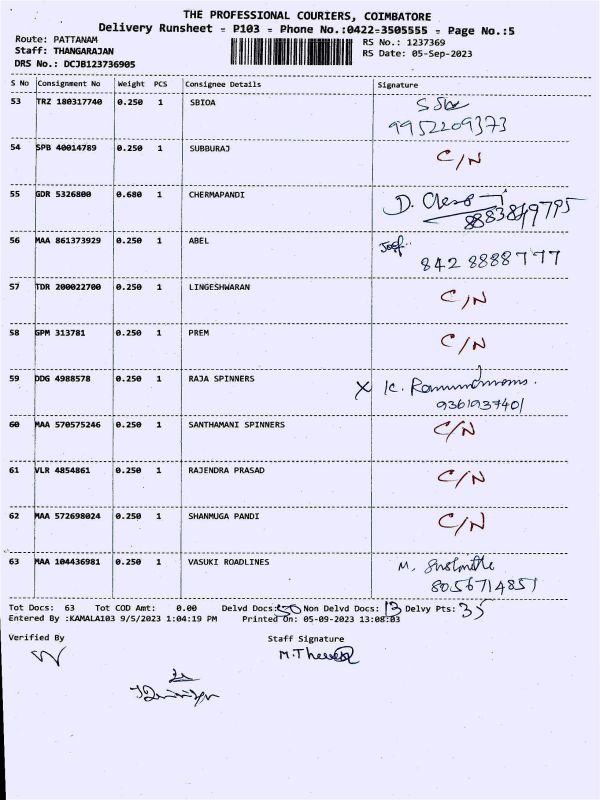 THE PROFESSIONAL COURIERS, COIMBATORE
Delivery Runsheet - P103 - Phone No.:0422-3505555 - Page No.:5
Route: PATTANAM
Staff: THANGARAJAN
DRS No.: DCJB123736905
RS No.: 1237369
RS Date: 05-Sep-2023
S No Consignment No Weight PCS Consignee Details Signature
53 TRZ 180317740 0.250 1 SBIOA
9952209373
54 SPB 40014789 0.250 1 SUBBURAJ C/N
55 GDR 5326800 0.680 1 CHERMAPANDI D.
56 MAA 861373929 0.250 1 ABEL
842 8888777
57 TDR 200022700 0.250 1 LINGESHWARAN C/N
58 GPM 313781 0.250 1 PREM C/N
59 DDG 4988578 0.250 1 RAJA SPINNERS X K.
9361937401
60 MAA 570575246 0.250 1 SANTHAMANI SPINNERS C/N
61 VLR 4854861 0.250 1 RAJENDRA PRASAD C/N
62 MAA 572698024 0.250 1 SHANMUGA PANDI C/N
63 MAA 104436981 0.250 1 VASUKI ROADLINES M.
8056714851
Tot Docs: 63 Tot COD Amt: 0.00 Delvd Docs: 50 Non Delvd Docs: 13 Delvy Pts: 35
Entered By :KAMALA103 9/5/2023 1:04:19 PM Printed On: 05-09-2023 13:08:03
Verified By Staff Signature